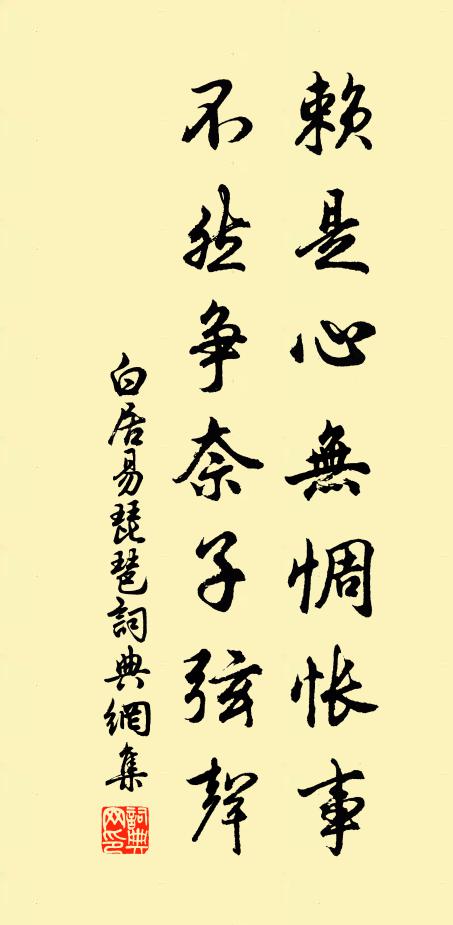 賴是心無惆怅事
不然争奈子弦聲
白居易琵琶詞典網集
詞典網印